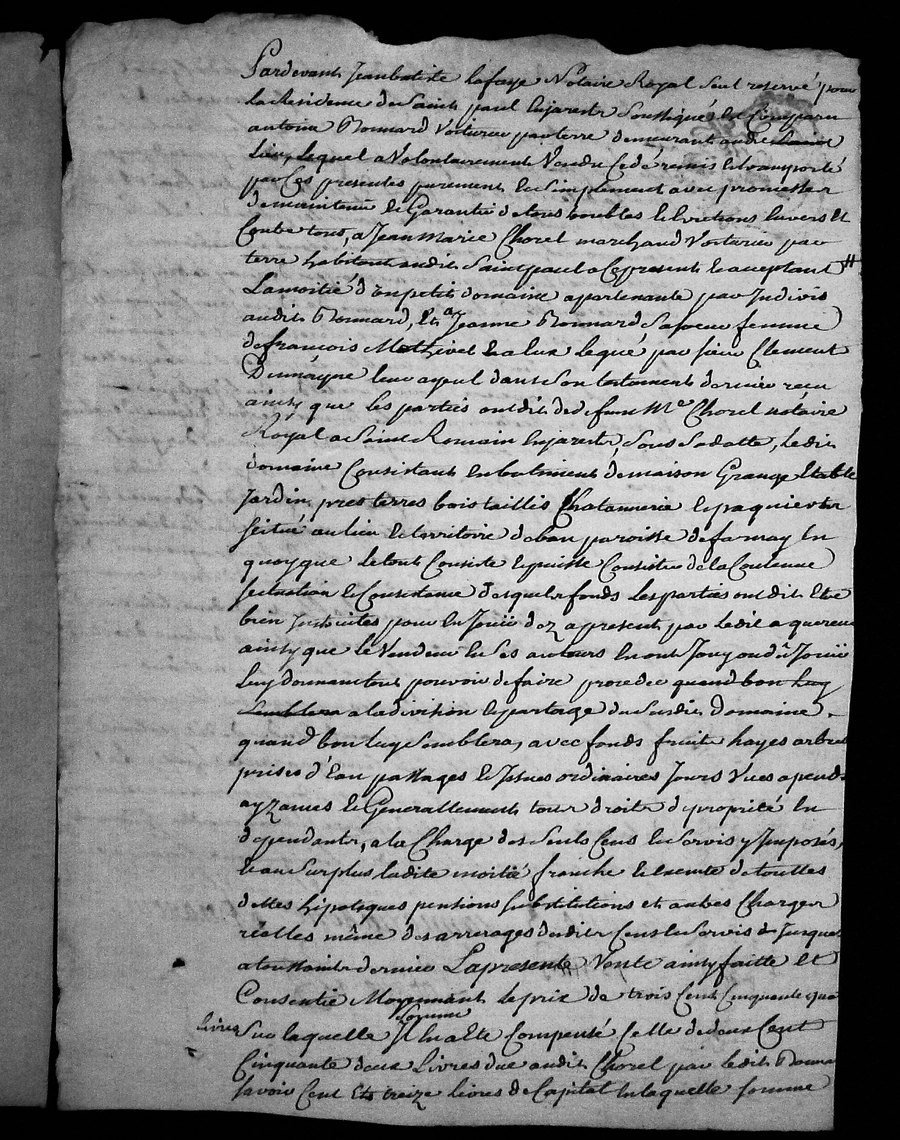 Pardevant Jeanbatiste Lafaye Notaire Royal seul reservé pour
la Residence de Saint paul enjarests soussigné est Comparu
antoine Bonnard Voiturier par terre demeurant audit
Lieu, Lequel a Volontairement Vendu Cedé remis et transporté
par Ces presentes purement et simplement avec promesse
de maintenue et Garantie de tous troubles et Evictions Envers Et
Contre tous, a Jean Marie Chorel marchand Voiturier par
terre habitant audit Saint paul a Ce present et acceptant
La moitié d'un petit domaine apartenante par Indivis
audit Bonnard, Et a Jeanne Bonnard, sa soeur femme
de francois Mathivet a Eux legué par sieur Clement
leur ayeul dans son testament dernier recu
ainsy que les parties ont dit de defunt Me Chorel notaire
Royal a Saint Romain Enjarests, sous sa datte, le dit
domaine Consistant En batiment de maison Grange Etable
Jardin, pres terres bois taillis Chatannerie et paquierage
scitué au lieu et territoire de ban paroisse de farnay En
quoy que le tout Consiste et puisse Consister de la Contenue
scituation et Consistance desquels fonds les parties ont dit Etre
bien Instruites pour En Jouir dez a present par ledit aquereur
ainsy que le Vendeur et ses auteurs En ont Jouy ou dû Jouir
Luy donnant tout pouvoir de faire proceder quand bon Luy
semblera a la division et partage du susdit Domaine
quand bon luy semblera, avec fonds fruits hayes arbres
prises d'Eau passages et Issues ordinaires Jours Vues apends
ayzances et Generallement tous droits de propriété En
dependants, a la Charge des seuls Cens et servis y Imposés,
Et au surplus ladite moitié franche et Exempte de touttes
dettes hipoteques pentions substitutions et autres Charges
reelles même des arrerages dudit Cens et servis de Jusques
a la toussaints dernier La presente Vente ainsy faitte Et
Consentie Moyennant le prix de trois Cent Cinquante quatre
livres
somme
Sur laquelle Il En a Ete Compensé Celle de deux Cent
Cinquante deux Livres due audit Chorel par ledit Bonnard
savoir Cent Et treize livres de Capital En laquelle somme